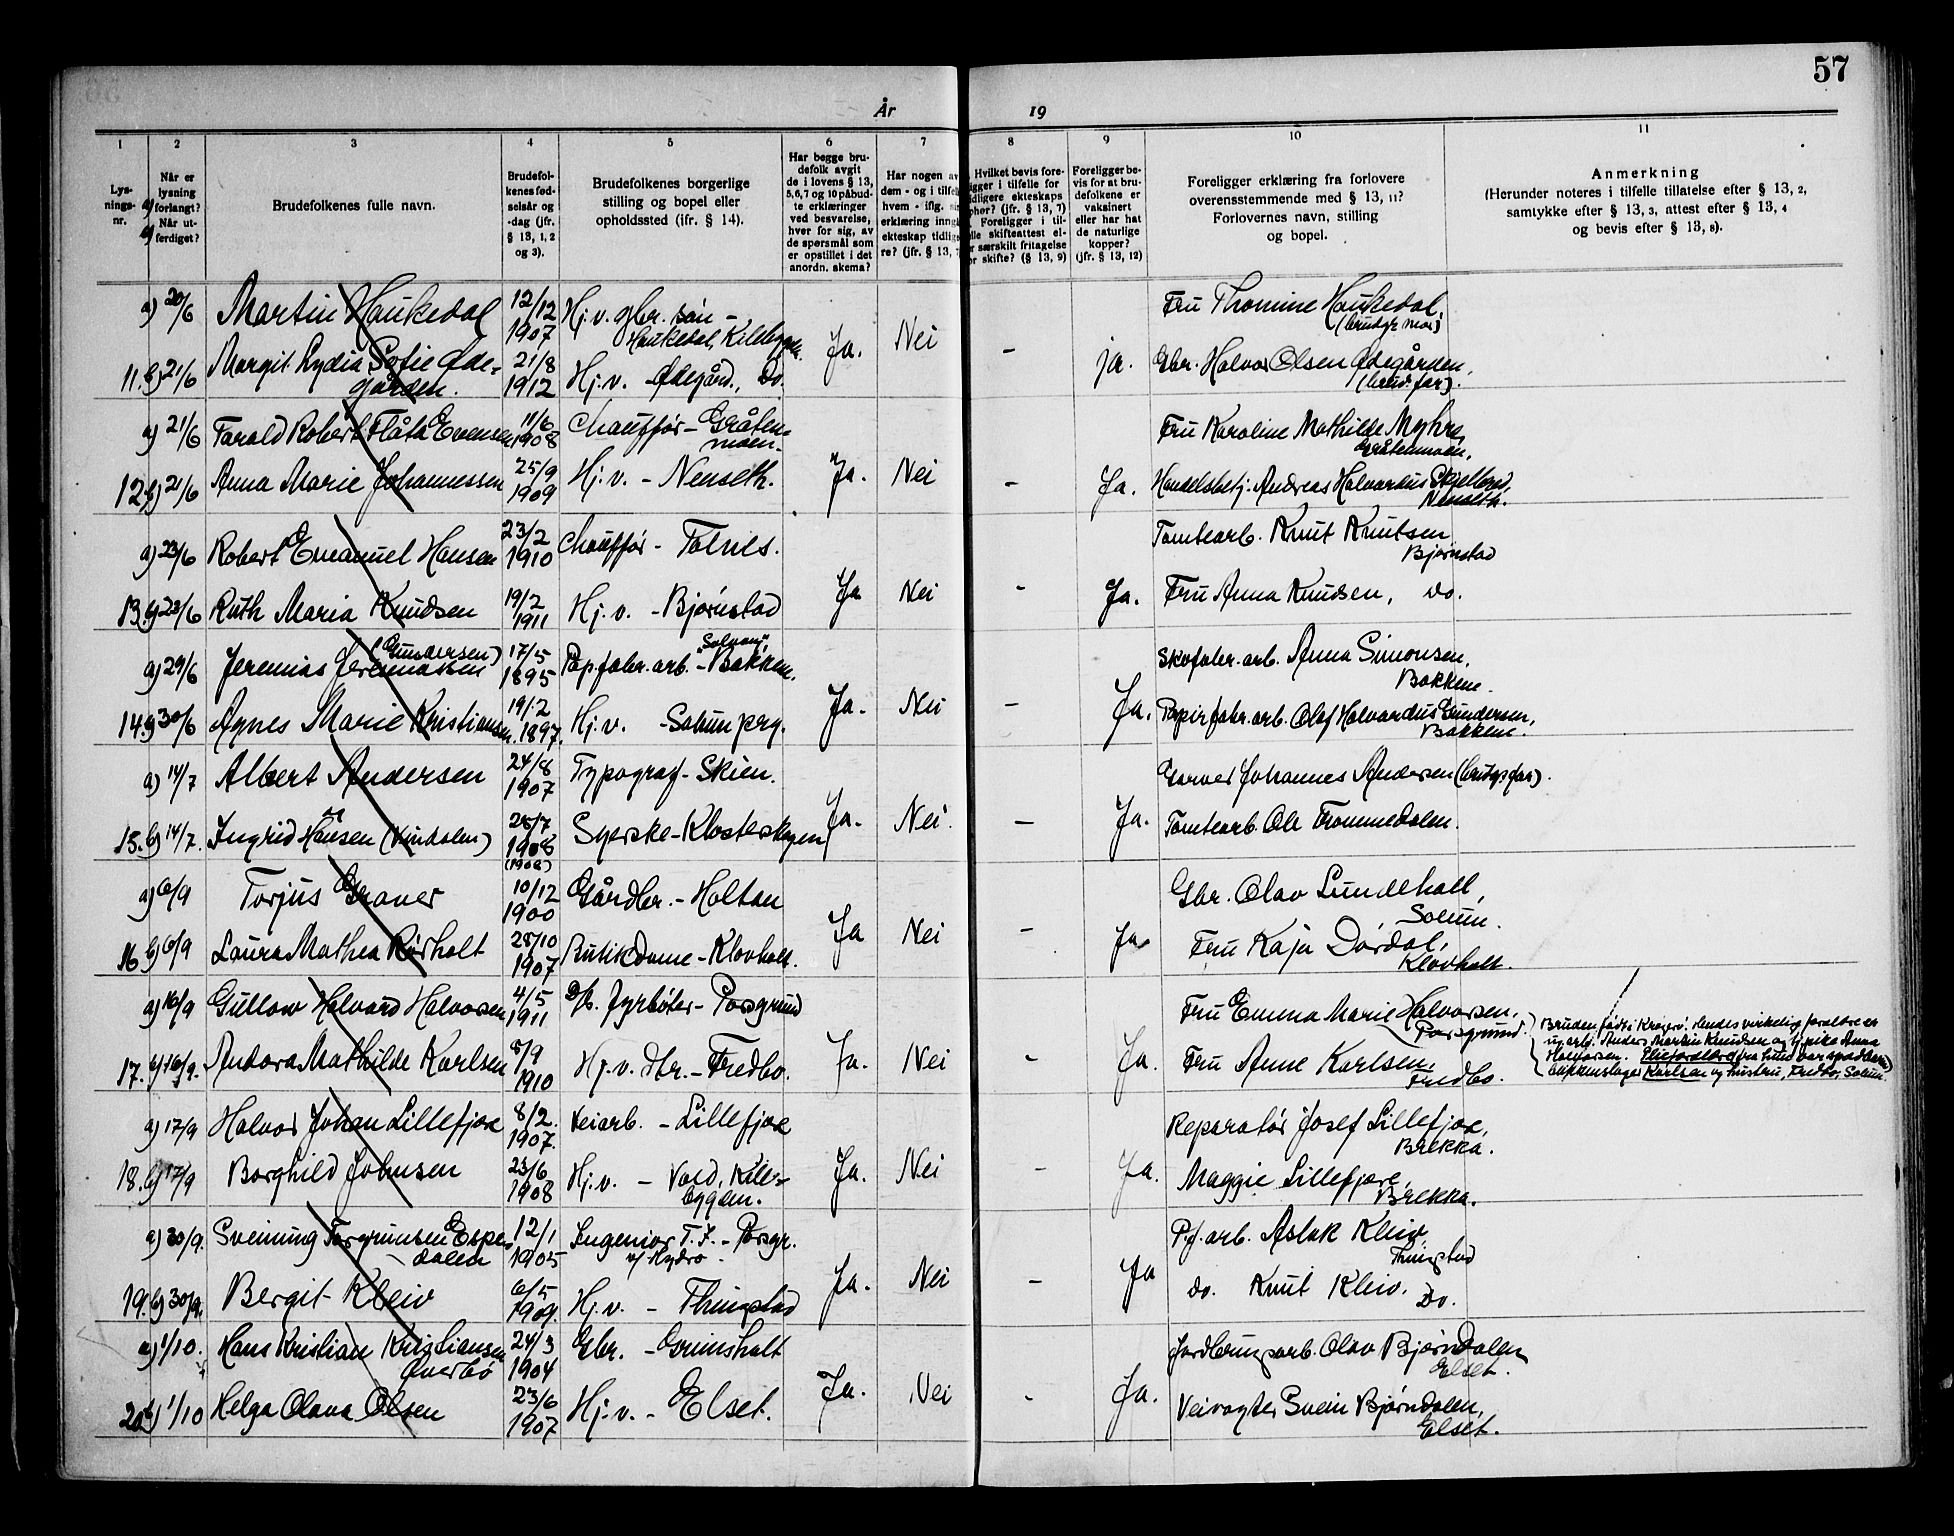 57
År 19
1 2 3 4 5 6 7 8 9 10 11
Lys-
nings-
nr.
Når er
lysning
forlangt?
Når ut-
ferdiget?
a)
b)
Brudefolkenes fulle navn.
Brudefol-
kenes fød-
selsår og
-dag (jfr.
§ 13, 1, 2
og 3).
Brudefolkenes borgerlige
stilling og bopel eller
opholdssted (ifr. § 14).
Har begge bru-
defolk avgit
de i lovens § 13,
5,6,7 og 10 påbud-
te erklæringer
ved besvarelse,
hver for sig, av
de spørsmål som
er opstillet i det
anordn. skema?
Har nogen av
dem - og i tilfelle
hvem - iflg.
erklæring inngå
ekteskap tidlig
re? (jfr. § 13, 7
Hvilket bevis fore-
igger i tilfelle for
idligere ekteskaps
phør? (jfr. § 13, 7)
Foreligger i til-
lle skifteattest el-
r særskilt fritagelse
or skifte? (§ 13, 9)
Foreligger be-
vis for at bru-
defolkene er
vaksinert
eller har hat
de naturlige
kopper?
(jfr. § 13, 12)
Foreligger erklæring fra forlovere
overensstemmende med § 13, 11?
Forlovernes navn, stilling
og bopel.
Anmerkning
(Herunder noteres i tilfelle tillatelse efter § 13, 2,
samtykke efter § 13, 3, attest efter § 13, 4
og bevis efter § 13, 8).
a) 20/6 Martin Haukedal 12/12 1907 Hj.v. gbr. søn - Haukedal, Kilebygden. Fru Thomine Haukedal, (brudgs mor)
11. b) 21/6 Margit Lydia Sofie Øde-
gården. 21/8 1912 Hj.v. - Ødegård., Do. Ja. Nei - ja. Gbr. Halvor Olsen Ødegården, (brud. far).
a) 21/6 Torald Robert Flåta Evensen 11/6 1908 Chauffør - Gråten-
moen. Fru Karoline Mathilde Myhre, Gråtenmoen.
12. b) 21/6 Anna Marie Johannessen 25/9 1909 Hj.v. - Nenseth. Ja. Nei - Ja. Handelsbetj. Andreas Halvardus Skjelbred, Nenseth.
a) 23/6 Robert Emanuel Hansen 23/2 1910 Chauffør - Tolnes. Tomtearb. Knut Knutsen Bjørnstad
13. b) 23/6 Ruth Maria Knudsen 19/2 1911 Hj.v. - Bjørnstad Ja Nei - Ja. Fru Anna Knudsen, Do.
a) 29/6 Jeremias Jeremiassen (Gundersen) 17/5 1895 Pap.fabr.arb. - "Solvang" Bakken. Skofabr.arb. Anna Simonsen, Bakkene.
14. b) 30/6 Agnes Marie Kristiansen. 19/2 1897. Hj.v. - Solum prg. Ja. Nei - Ja. Papirfabr.arb. Olaf Halvardus Gundersen, Bakkene.
a) 14/7 Albert Andersen 24/8 1907 Typograf - Skien. Garver Johannes Andersen (brudgs far).
15. b) 14/7. Ingrid Hansen (Vindalen) 25/7 1908 (1908) Syerske - Klosterskogen Ja. Nei. - Ja. Tomtearb. Ole Trommedalen.
a) 6/9 Torjus Graver 10/12 1900 Gårdbr. - Holtan Gbr. Olav Lundeholt, Solum.
16 b) 6/9 Laura Mathea Rørholt 28/10 1907 Butikdame - Klovholt. Ja Nei - Ja. Fru Kaja Dørdal, Klovholt.
a) 16/9 Gullow Halvard Halvorsen 4/5 1911 D/S. fyrbøter - Porsgrund Fru Emma Marie Halvorsen, Porsgrund.
17. b) 16/9. Andora Mathilde Karlsen 8/9 1910 Hj.v. dtr. - Fredbo. Ja. Nei - Ja. Fru Anne Karlsen, Fredbo.
Bruden født i Kragerø. Hendes virkelige foreldre er
ug.arb. Anders Martin Knudsen og pike Anna
Halvorsen. Pleieforeldre fra hun var spedbarn
bøkkerslager Karlsen og hustru, Fredbo, Solum.
a) 17/9 Halvor Johan Lillefjære 8/2. 1907. Veiarb. - Lillefjære Reparatør Josef Lillefjære, Brekka.
18. b) 17/9 Borghild Johnsen 23/6 1908 Hj.v. - Vold, Kile-
bygden. Ja. Nei - Ja. Maggie Lillefjære, Brekka.
a) 30/9. Sveinung Torgrimsen Espe-
dalen 12/1 1905 Ingeniør T.F. - Porsgr. v/ Hydro. Pf. arb. Aslak Kleiv, Thingstad
19. b) 30/9. Bergit Kleiv 6/5 1909. Hj.v. - Thingstad Ja. Nei - Ja do. Knut Kleiv. Do.
a) 1/10. Hans Kristian Kristiansen Øverbø 24/3 1904 Gbr. - Grinisholt Jordbrugsarb. Olav Bjørndalen Elset.
20. b) 1/10 Helga Olava Olsen 23/6 1907 Hj.v. - Elset. Ja. Nei - Ja. Veivogter Svein Bjørndalen, Elset.